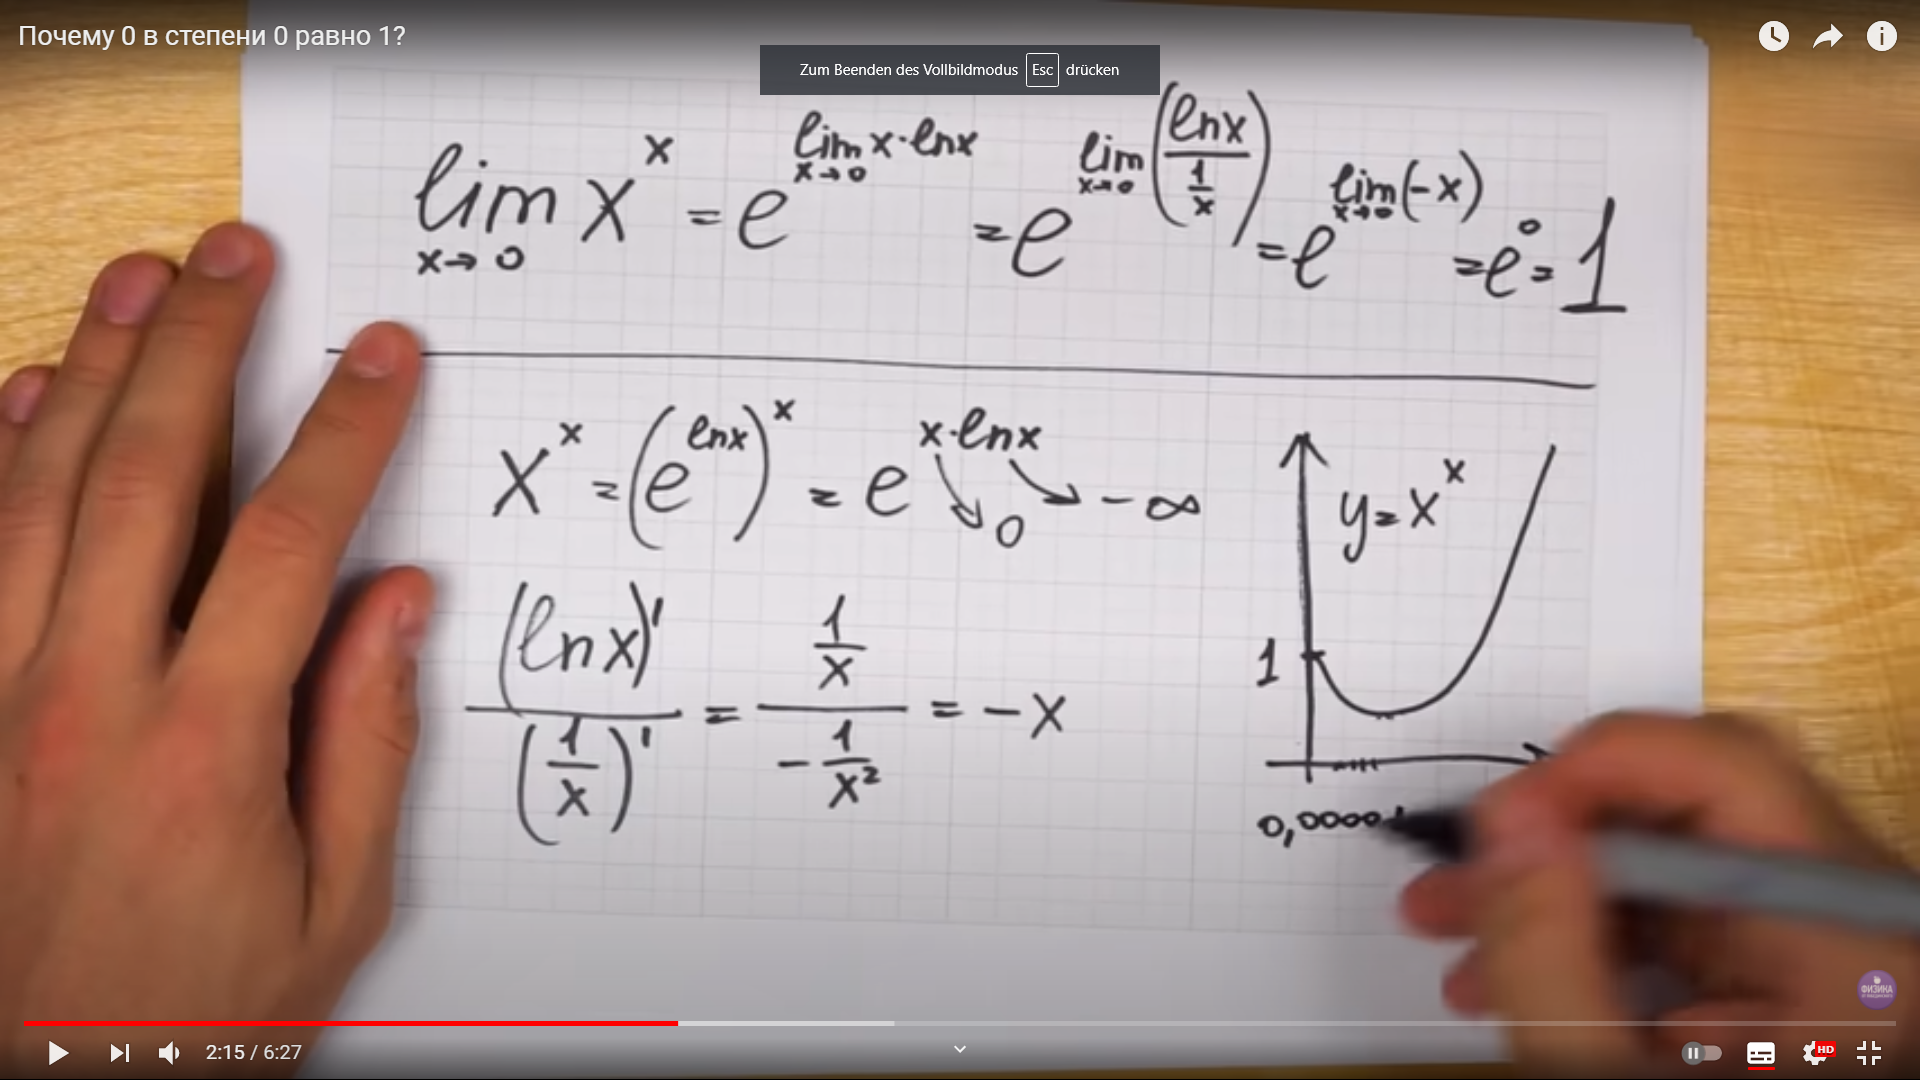 Почему 0 в степени 0 равно 1?
Zum Beenden des Vollbildmodus Esc drücken
lim x→0 x^x = e^(lim x→0 x·lnx) = e^(lim x→0 (lnx / (1/x))) = e^(lim x→0 (-x)) = e^0 = 1
x^x = (e^lnx)^x = e^(x·lnx) → 0 → -∞
y = x^x
(ln x)' / (1/x)' = (1/x) / (-1/x²) = -x
1
0,0000
ФИЗИКА
2:15 / 6:27
HD